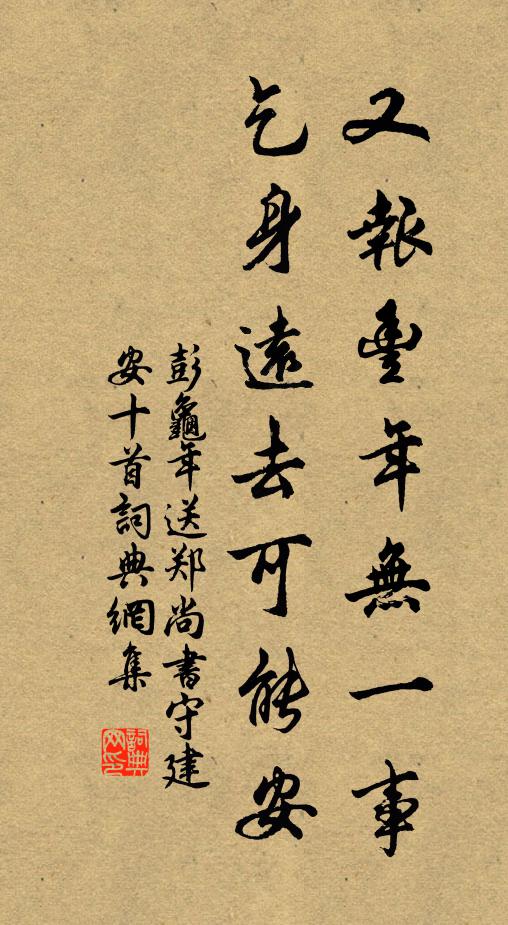 又報豐年無一事
乞身遠去可能安
彭龜年送郑尚書守建
安十首詞典網集
詞典
网印